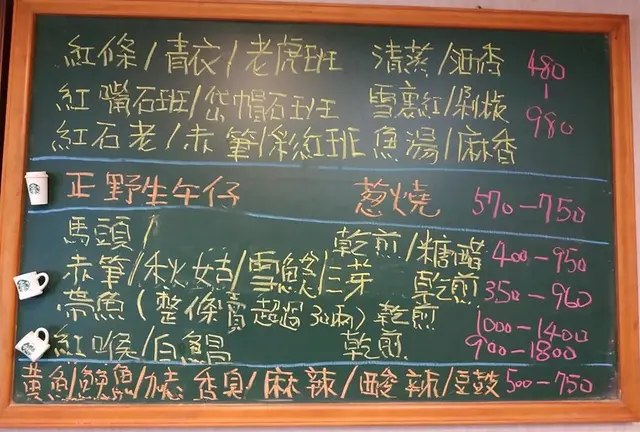 紅條/青衣/老虎班 清蒸/酒香 480
紅嘴石班/岱帽石班 雪裏紅/剁椒 |
紅石老/赤筆/彩紅班 魚湯/麻香 980
正野生午仔 葱燒 570-750
馬頭/ 乾煎/糖醋 400-950
赤筆/秋姑/雪鯢/三芽 乾煎 350-960
帶魚(整條賣超過30兩)乾煎 1000-1400
紅喉/白鯧 乾煎 900-1800
黃魚/鮸魚/燒 香臭/麻辣/酸辣/豆鼓 500-750